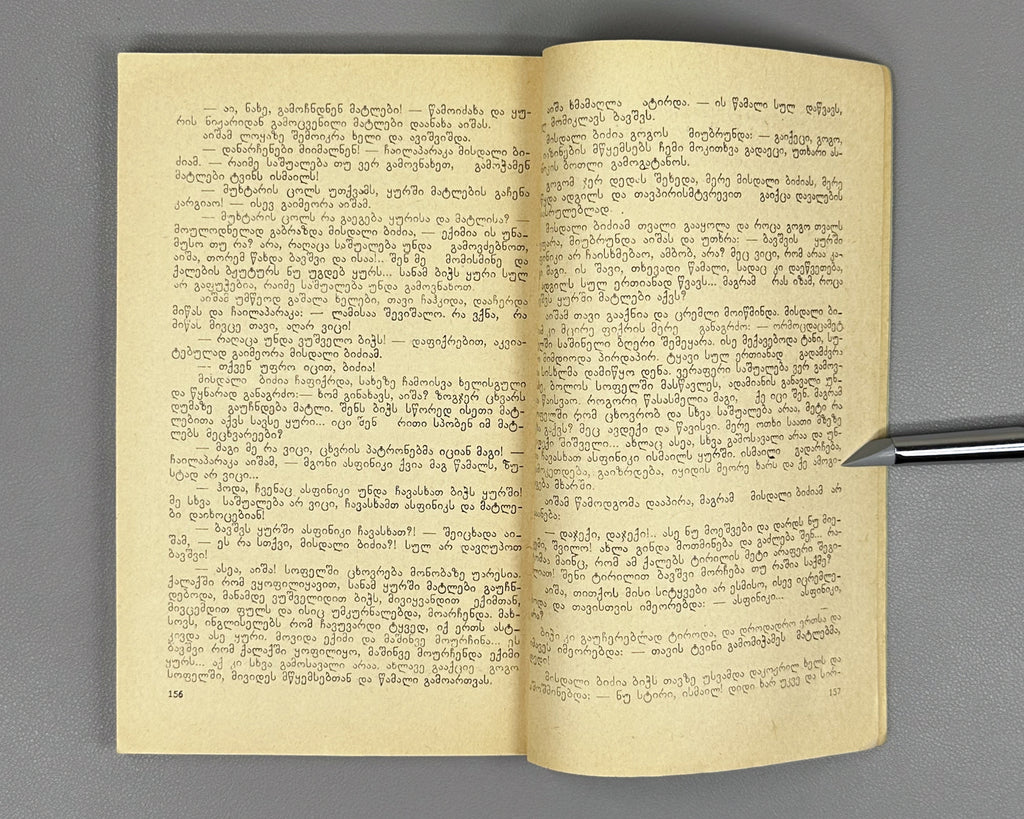 — აი, ნახე, გამოჩნდნენ მატლები! — წამოიძახა და ყუ-
რის ნიჟარიდან გამოცვენილი მატლები დაანახა აიშას.
აიშამ ლოყაზე შემოიკრა ხელი და ავიშვიშდა.
— დანარჩენები მიიმალნენ! — ჩაილაპარაკა მისდალი ბი-
ძიამ. — რაიმე საშუალება თუ ვერ გამოვნახეთ, გამოჭამენ
მატლები ტვინს ისმაილს!
— მუხტარის ცოლს უთქვამს, ყურში მატლების გაჩენა
კარგიაო! — ისევ გაიმეორა აიშამ.
— მუხტარის ცოლს რა გაეგება ყურისა და მატლისა? —
მოულოდნელად გაბრაზდა მისდალი ბიძია, — ექიმია ის უნა-
მუსო თუ რა? არა, რაღაცა საშუალება უნდა გამოვძებნოთ,
აიშა, თორემ წახდა ბავშვი და ისაა!.. შენ მე მომისმინე და
ქალების ბჟუტურს ნუ უგდებ ყურს... სანამ ბიჭს ყური სულ
არ გაფუჭებია, რაიმე საშუალება უნდა გამოვნახოთ.
აიშამ უმწეოდ გაშალა ხელები, თავი ჩაჰკიდა, დააჩერდა
მიწას და ჩაილაპარაკა: — ლამისაა შევიშალო. რა ვქნა, რა
მიწას მივცე თავი, აღარ ვიცი!
— რაღაცა უნდა ვუშველო ბიჭს! — დაფიქრებით, აკვია-
ტებულად გაიმეორა მისდალი ბიძიამ.
— თქვენ უფრო იცით, ბიძია!
მისდალი ბიძია ჩაფიქრდა, სახეზე ჩამოისვა ხელისგული
და წყნარად განაგრძო:— ხომ გინახავს, აიშა? ზოგჯერ ცხვარს
დუმაზე გაუჩნდება მატლი. შენს ბიჭს სწორედ ისეთი მატ-
ლებითა აქვს სავსე ყური... იცი შენ რითი სპობენ იმ მატ-
ლებს მეცხვარეები?
— მაგი მე რა ვიცი, ცხვრის პატრონებმა იციან მაგი! —
ჩაილაპარაკა აიშამ, — მგონი ასფინიკი ქვია მაგ წამალს, ზუ-
სტად არ ვიცი...
— ჰოდა, ჩვენაც ასფინიკი უნდა ჩავასხათ ბიჭს ყურში!
მე სხვა საშუალება არ ვიცი, ჩავასხამთ ასფინიკს და მატლე-
ბი დაიხოცებიან!
— ბავშვს ყურში ასფინიკი ჩავასხათ?! — შეიცხადა აი-
შამ, — ეს რა სთქვი, მისდალი ბიძია?! სულ არ დავღუპოთ
ბავშვი!
— ასეა, აიშა! სოფელში ცხოვრება მონობაზე უარესია.
ქალაქში რომ ვყოფილიყავით, სანამ ყურში მატლები გაუჩნ-
დებოდა, მანამდე ვუშველიდით ბიჭს, მივიყვანდით ექიმთან,
მივცემდით ფულს და ისიც უმკურნალებდა, მოარჩენდა. მახ-
სოვს, ინგლისელებს რომ ჩავუვარდი ტყვედ, იქ ერთს ასტ-
კივდა ასე ყური. მოვიდა ექიმი და მაშინვე მოურჩინა... ეს
ბავშვი რომ ქალაქში ყოფილიყო, მაშინვე მოურჩენდა ექიმი
ყურს... აქ კი სხვა გამოსავალი არაა. ახლავე გააქციე გოგო
სოფელში, მივიდეს მწყემსებთან და წამალი გამოართვას.
156
აიშა ხმამაღლა ატირდა. — ის წამალი სულ დაწვავს,
მომიკლავს ბავშვს.
მისდალი ბიძია გოგოს მიუბრუნდა: — გაიქეცი, გოგო,
მწყემსებს ჩემი მოკითხვა გადაეცი, უთხარი ას-
ბოთლი გამოგატანოს.
გოგომ ჯერ დედას შეხედა, მერე მისდალი ბიძიას, მერე
ადგილს და თავპირისმტვრევით გაიქცა დავალების
შესასრულებლად.
მისდალი ბიძიამ თვალი გააყოლა და როცა გოგო თვალს
მიუბრუნდა აიშას და უთხრა: — ბავშვის ყურში
არ ჩაისხმებაო, ამბობ, არა? მეც ვიცი, რომ არაა კა-
მაგი. ის შავი, თხევადი წამალი, სადაც კი დაეწვეთება,
ადგილს სულ ერთიანად წვავს... მაგრამ რას იზამ, როცა
ყურში მატლები აქვს?
აიშამ თავი გააქნია და ცრემლი მოიწმინდა. მისდალი ბი-
კი მცირე ფიქრის მერე განაგრძო: — ორმოცდაცამეტ
საშინელი ბღერი შემეყარა. ისე მექავებოდა ტანი, სუ-
მიმდიოდა პირდაპირ. ტყავი სულ ერთიანად გადამძვრა
სისხლმა დამიწყო დენა. ვერაფერი საშუალება ვერ გამოვ-
ბოლოს სოფელში მასწავლეს, ადამიანის განავალი უნ-
წაისვაო. როგორი წასასმელია მაგი, ქე იცი შენ. მაგრამ
სოფელში რომ ცხოვრობ და სხვა საშუალება არაა, მეტი რა
გაქვს? მეც ავდექი და წავისვი. მერე ოთხი საათი მზეზე
შიშველი... ახლაც ასეა, სხვა გამოსავალი არაა და უნ-
ჩავასხათ ასფინიკი ისმაილს ყურში. ისმაილი გადარჩება,
გაიზრდება, იყიდის მეორე ხარს და ქე ამოგი-
მხარში.
აიშამ წამოდგომა დააპირა, მაგრამ მისდალი ბიძიამ არ
— დაჯექი, დაჯექი!.. ასე ნუ მოეშვები და დარდს ნუ მიე-
შვილო! ახლა გინდა მოთმინება და გაძლება შენ... რა-
მაინც, რომ ამ ქალებს ტირილის მეტი არაფერი შეგი-
შენი ტირილით ბავშვი მორჩება თუ რაშია საქმე?
აიშა, თითქოს მისი სიტყვები არ ესმისო, ისევ იცრემლე-
და თავისთვის იმეორებდა: — ასფინიკი... ასფინიკი,
ბიჭი კი გაუჩერებლად ტიროდა, და დროდადრო ერთსა და
იმავეს იმეორებდა: — თავის ტვინი გამომიჭამეს მატლებმა,
დედი!
მისდალი ბიძია ბიჭს თავზე უსვამდა დაკოჟრილ ხელს და
— ნუ სტირი, ისმაილ! დიდი ხარ უკვე და სირ-
157